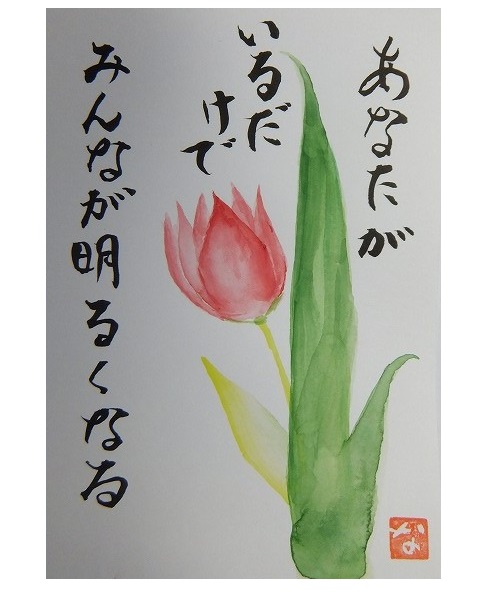 あなたが
いるだ
けで
みんなが明るくなる
な